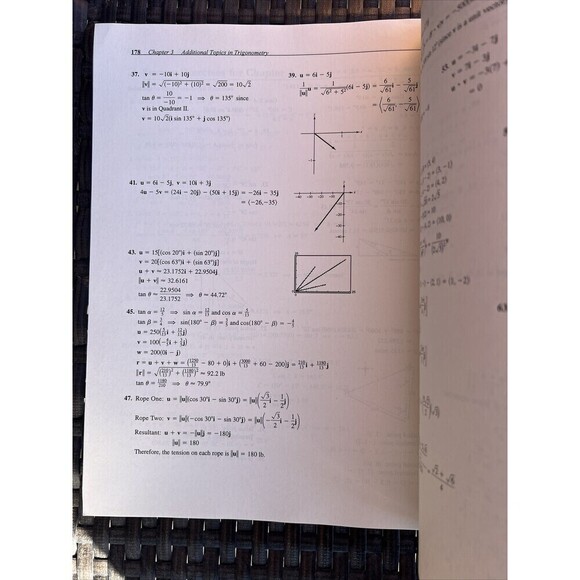 178 Chapter 3 Additional Topics in Trigonometry
37. v = −10i + 10j
‖v‖ = √(−10)² + (10)² = √200 = 10√2
tan θ = 10/−10 = −1 ⟹ θ = 135° since
v is in Quadrant II.
v = 10√2(i sin 135° + j cos 135°)
39. u = 6i − 5j
1/‖u‖ u = 1/√6² + 5² (6i − 5j) = 6/√61 i − 5/√61
= ⟨6/√61, −5/√61⟩
41. u = 6i − 5j, v = 10i + 3j
4u − 5v = (24i − 20j) − (50i + 15j) = −26i − 35j
= ⟨−26, −35⟩
43. u = 15[(cos 20°)i + (sin 20°)j]
v = 20[(cos 63°)i + (sin 63°)j]
u + v ≈ 23.1752i + 22.9504j
‖u + v‖ ≈ 32.6161
tan θ ≈ 22.9504/23.1752 ⟹ θ ≈ 44.72°
45. tan α = 12/5 ⟹ sin α = 12/13 and cos α = 5/13
tan β = 3/4 ⟹ sin(180° − β) = 3/5 and cos(180° − β) = −4/5
u = 250(5/13 i + 12/13 j)
v = 100(−4/5 i + 3/5 j)
w = 200(0i − j)
r = u + v + w = (1250/13 − 80 + 0)i + (3000/13 + 60 − 200)j = 210/13 i + 1180/13 j
‖r‖ = √(210/13)² + (1180/13)² ≈ 92.2 lb
tan θ = 1180/210 ⟹ θ ≈ 79.9°
47. Rope One: u = ‖u‖(cos 30°i − sin 30°j) = ‖u‖(√3/2 i − 1/2 j)
Rope Two: v = ‖u‖(−cos 30°i − sin 30°j) = ‖u‖(−√3/2 i − 1/2 j)
Resultant: u + v = −‖u‖j = −180j
‖u‖ = 180
Therefore, the tension on each rope is ‖u‖ = 180 lb.